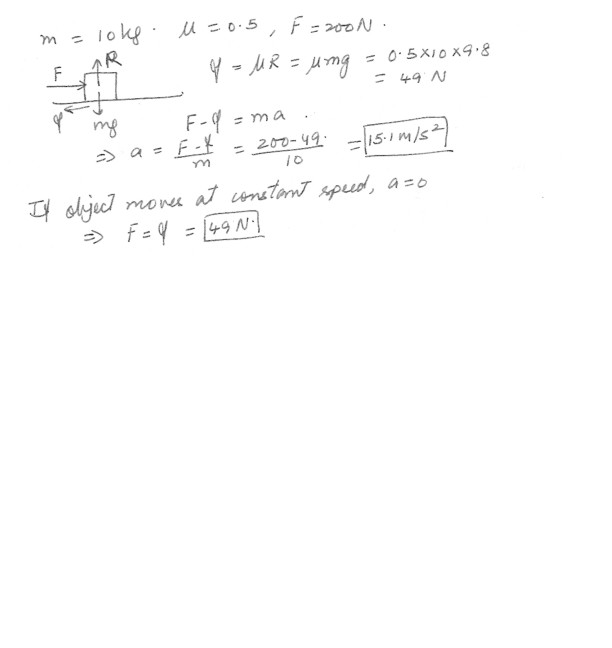 m = 10kg. μ = 0.5, F = 200N.
F R f mg
f = μR = μmg = 0.5×10×9.8
= 49 N
F-f = ma.
⇒ a = F-f/m = 200-49./10 = 15.1 m/s²
If object moves at constant speed, a=0
⇒ F = f = 49 N.